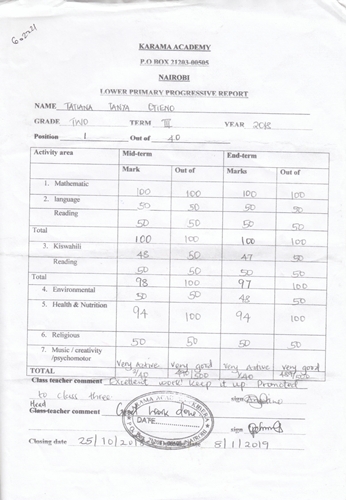 6.2021
KARAMA ACADEMY
P.O BOX 21203-00505
NAIROBI
LOWER PRIMARY PROGRESSIVE REPORT
NAME TATIANA TANYA OTIENO
GRADE TWO TERM III YEAR 2018
Position 1 Out of 40
Activity area Mid-term End-term
Mark Out of Marks Out of
1. Mathematic 100 100 100 100
2. language 50 50 50 50
Reading 50 50 50 50
Total 100 100 100 100
3. Kiswahili 48 50 47 50
Reading 50 50 50 50
Total 98 100 97 100
4. Environmental 50 50 48 50
5. Health & Nutrition 94 100 94 100
6. Religious 50 50 50 50
7. Music / creativity /psychomotor Very Active very good Very Active very good
TOTAL
Class teacher comment Excellent work! keep it up Promoted
to class three sign
Head
Class teacher comment Good work done sign
KARAMA ACADEMY
DATE
Closing date 25/10/2018 8/1/2019